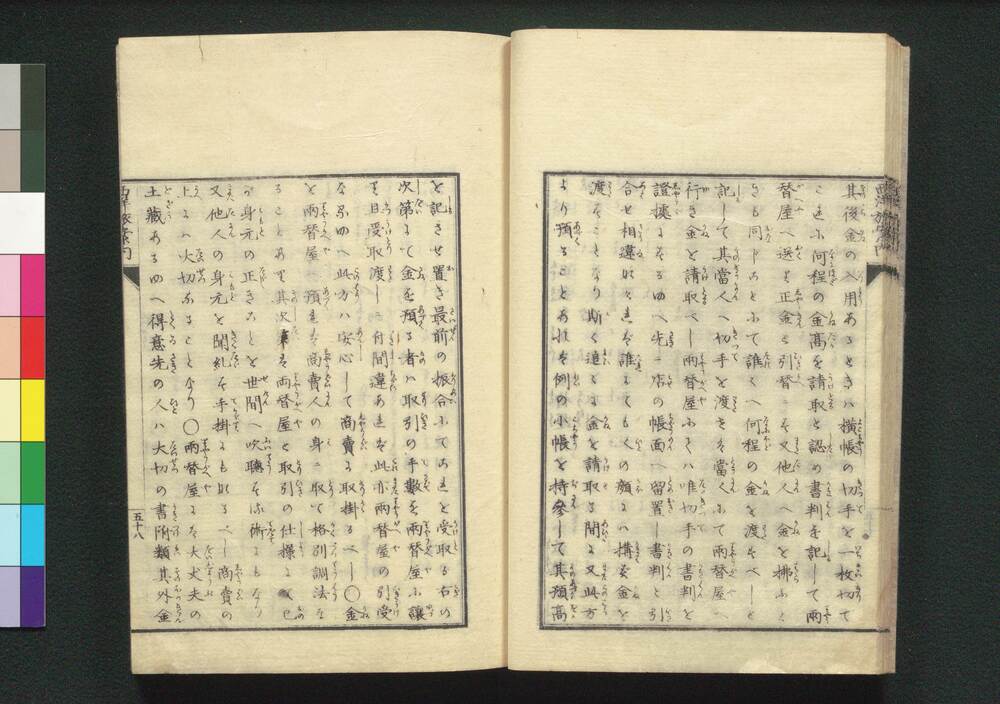 其後金の入用あるときハ横帳の切手を一枚切て
これに何程の金高を請取と認め書判を記して兩
替屋へ送り正金と引替ゝ又他人へ金を拂ふと
きも同しことにて誰くへ何程の金を渡すべしと
記して其當人へ切手を渡せば當人にて兩替屋へ
行き金を請取べし兩替屋にてハ唯切手の書判を
證據とするゆへ先ツ店の帳面へ留置し書判と引
合せ相違なければ誰にてもその願ハ構ハず金を
渡すことなり斯く追々金を請取る間に又此方
より預ることあれば例の小帳を持參して其預高
を記させ置き最前の振合にてこれを受取る右の
次第にて金を預る者ハ取引の手數を兩替屋に讓
り日受取渡しに付間違あれば此亦兩替屋の引受
なるゆへ此方ハ安心して商賣に取掛るべし〇金
を兩替屋へ預れば商賣人の身に取て格別調法な
ることあり其次第は兩替屋と取引の仕操は己
が身元の正きことを世間へ吹聽する術ともなり
又他人の身元を聞糺す手掛にも成るべし商賣の
上にハ大切なることなり〇兩替屋にハ大丈夫の
土藏あるゆへ得意先の人ハ大切の書附類其外金
西洋旅案内
五十八